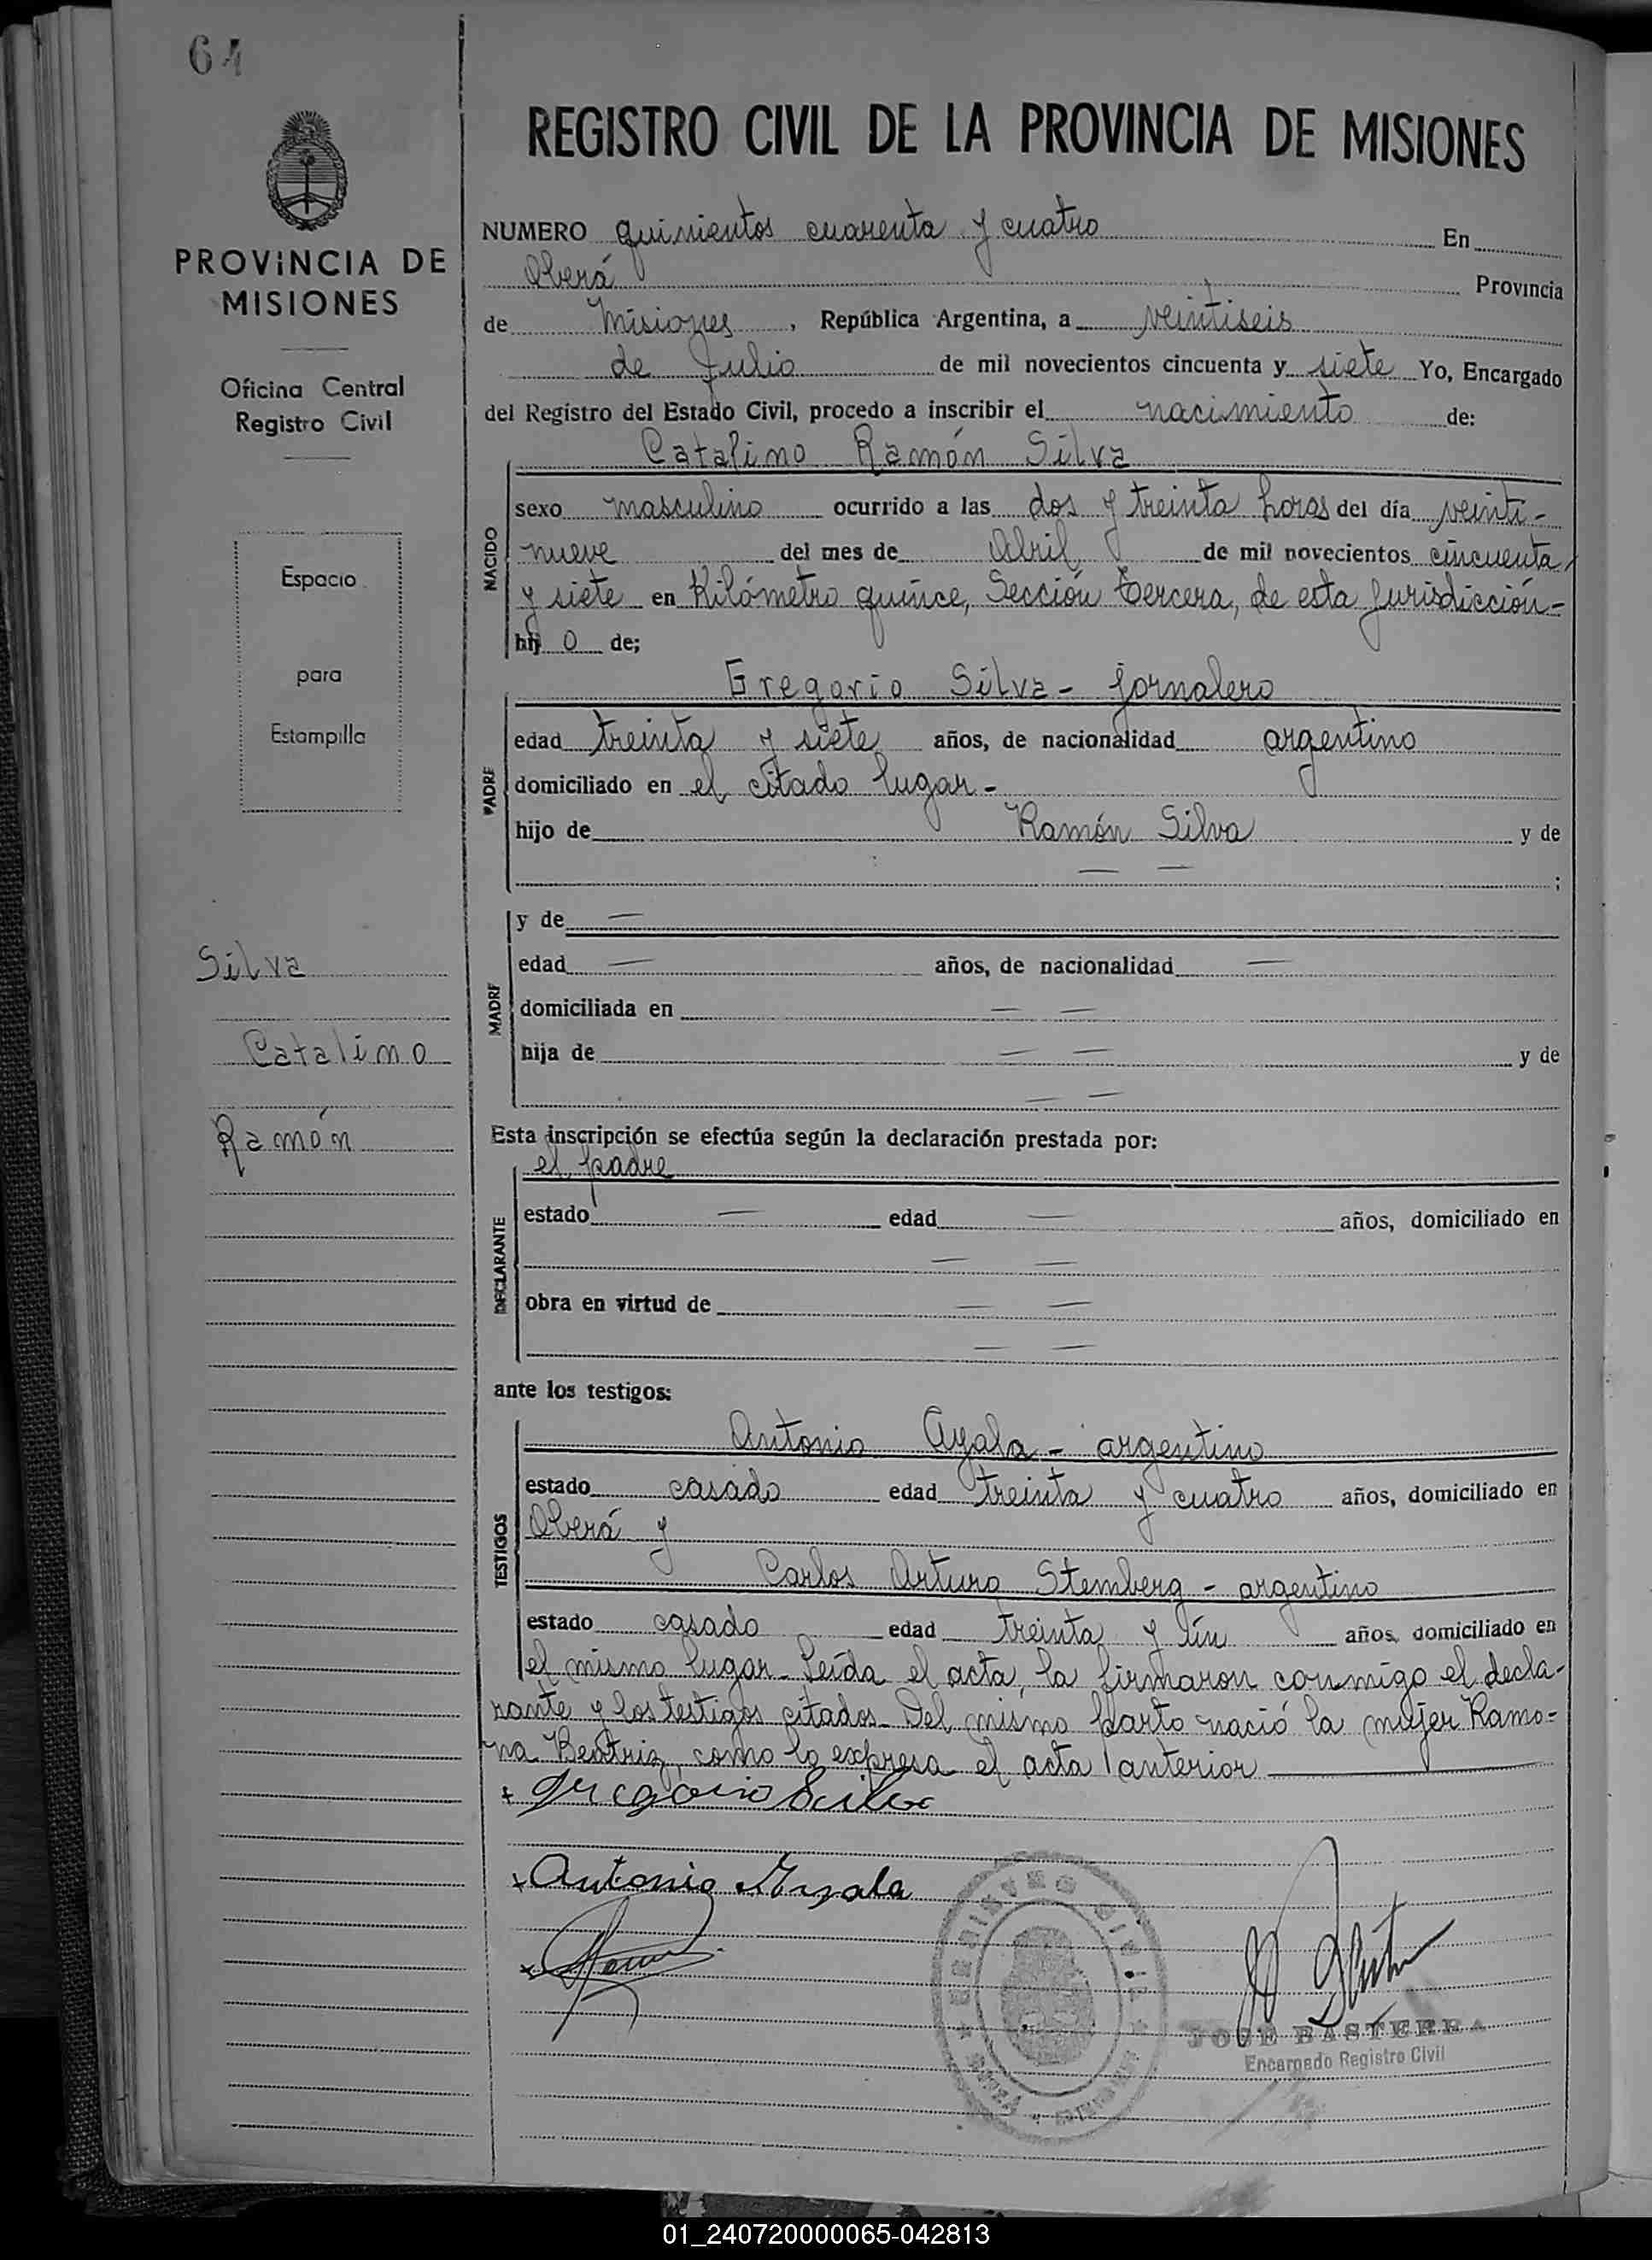 64
PROVINCIA DE
MISIONES
Oficina Central
Registro Civil
Espacio
para
Estampilla
Silva
Catalino
Ramón
REGISTRO CIVIL DE LA PROVINCIA DE MISIONES
NUMERO quinientos cuarenta y cuatro En
Oberá Provincia
de Misiones, República Argentina, a veintiseis
de Julio de mil novecientos cincuenta y siete Yo, Encargado
del Registro del Estado Civil, procedo a inscribir el nacimiento de:
Catalino Ramón Silva
NACIDO
sexo masculino ocurrido a las dos y treinta horas del día veinti-
nueve del mes de Abril de mil novecientos cincuenta
y siete en Kilómetro quince, Sección tercera, de esta jurisdicción-
hij o de;
Gregorio Silva - jornalero
PADRE
edad treinta y siete años, de nacionalidad argentino
domiciliado en el citado lugar -
hijo de Ramón Silva y de
— — ;
MADRE
y de —
edad — años, de nacionalidad —
domiciliada en — —
hija de — — y de
— —
Esta inscripción se efectúa según la declaración prestada por:
el padre
DECLARANTE
estado — edad — años, domiciliado en
— —
obra en virtud de — —
— —
ante los testigos:
Antonio Ayala - argentino
TESTIGOS
estado casado edad treinta y cuatro años, domiciliado en
Oberá y
Carlos Arturo Stemberg - argentino
estado casado edad treinta y ún años, domiciliado en
el mismo lugar - Leída el acta, la firmaron conmigo el decla-
rante y los testigos citados - Del mismo parto nació la mujer Ramo-
na Beatriz, como lo expresa el acta anterior
+ Gregorio Silva
+ Antonio Ayala
REGISTRO CIVIL
JOSE BASTERRA
Encargado Registro Civil
01_240720000065-042813